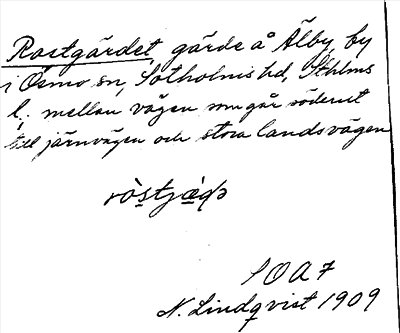 Rastgärdet, gärde å Älby by
i Ösmo sn, Sotholms hd, Sthlms
l. mellan vägen som går söderut
till järnvägen och stora landsvägen
SOA 7
N. Lindqvist 1909